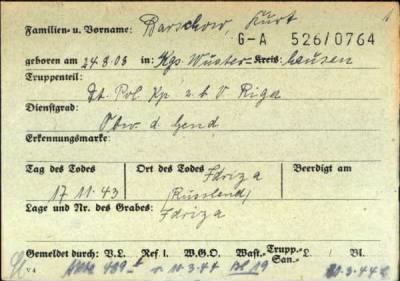 Familien- u. Vorname: Barschow, Kurt
G-A 526/0764
geboren am 24.8.03 in: Kgs. Wuster-Kreis: hausen
Truppenteil:
Lt. Pol Kp z.b.V. Riga
Dienstgrad:
Obw. d. Gend
Erkennungsmarke:
Tag des Todes Ort des Todes Idriza Beerdigt am
17 11.43 (Russland)
Lage und Nr. des Grabes:
Idriza
Gemeldet durch: V.L. Ref I. W.G.O. Wast.- Trupp.- San.- L. Bl.
V 4 v. 11.3.44 Bl 19